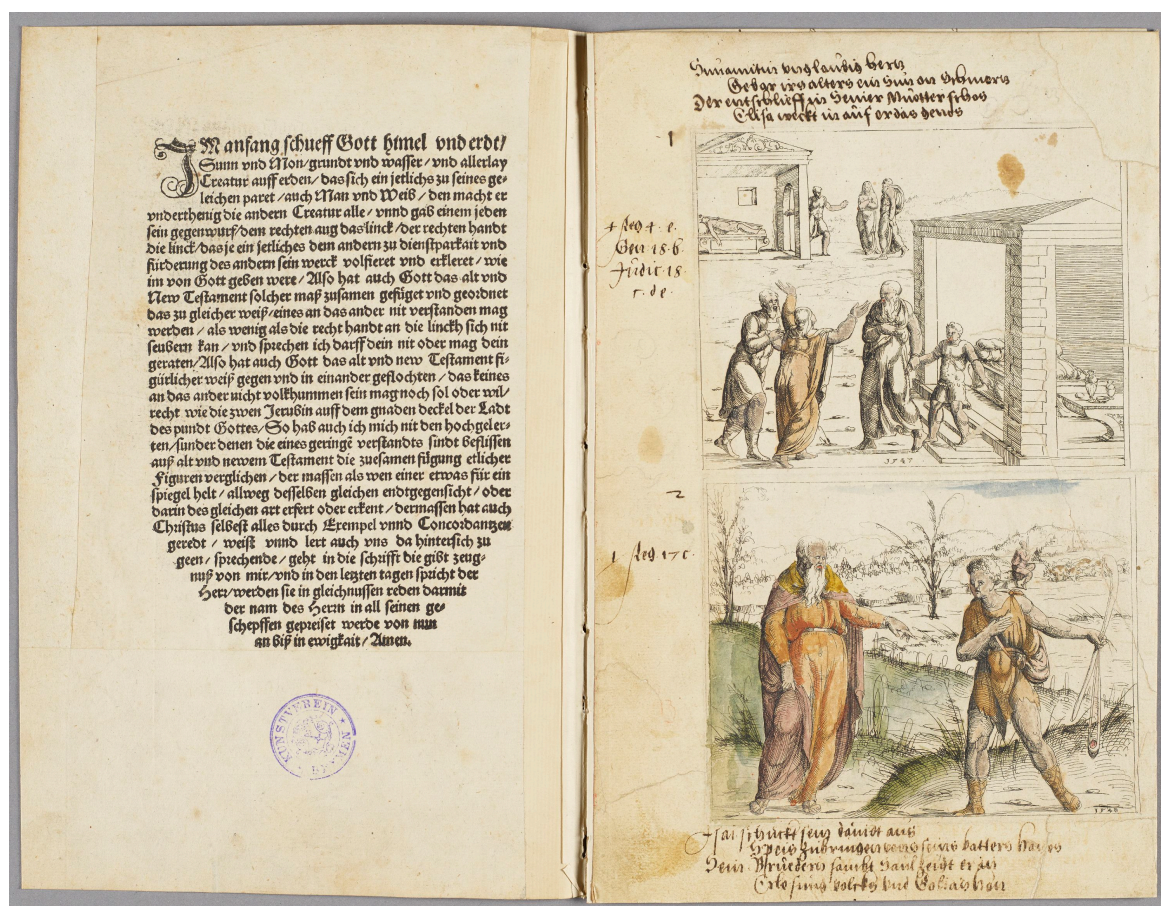 IM anfang schueff Gott himel vnd erdt/
Sunn vnd Mon/grundt vnd wasser/vnd allerlay
Creatur auff erden/das sich ein jetlichs zu seines ge-
leichen paret/auch Man vnd Weib/den macht er
vnderthenig die andern Creatur alle/vnnd gab einem jeden
sein gegenwurf/dem rechten aug das linck/der rechten handt
die linck/das je ein jetliches dem andern zu dienstparkait vnd
fürderung des andern sein werck volfieret vnd erkleret/wie
im von Gott geben were/Also hat auch Gott das alt vnd
New Testament solcher maß zusamen gefüget vnd geordnet
das zu gleicher weiß/eines an das ander nit verstanden mag
werden/als wenig als die recht handt an die linckh sich nit
seubern kan/vnd sprechen ich darff dein nit oder mag dein
geraten/Also hat auch Gott das alt vnd new Testament fi-
gürlicher weiß gegen vnd in einander geflochten/das keines
an das ander nicht volkhummen sein mag noch sol oder wil/
recht wie die zwen Jerubin auff dem gnaden deckel der Ladt
des pundt Gottes/So hab auch ich mich nit den hochgeler-
ten/sunder denen die eines geringe verstandts sindt beflissen
auß alt vnd newem Testament die zuesamen fügung etlicher
Figuren verglichen/der massen als wen einer etwas für ein
spiegel helt/allweg desselben gleichen endtgegensicht/oder
darin des gleichen art erfert oder erkent/dermassen hat auch
Christus selbest alles durch Exempel vnnd Concordantzen
geredt/weist vnnd lert auch vns da hintersich zu
geen/sprechende/geht in die schrifft die gibt zeug-
nuß von mir/vnd in den letzten tagen spricht der
Herr/werden sie in gleichnussen reden darmit
der nam des Herrn in all seinen ge-
schepffen gepreiset werde von nun
an biß in ewigkait/Amen.
KUNSTVEREIN
BREMEN
Sunamitin vnglaubig hertz
Gebar irs alters ein Sun on Schmertz
Der entschlieff in Seiner Muotter schos
Elisa weckt in auf
1
4 Reg 4. e.
Gen 18. b
Judic 18
c. de.
1547
2
1 Reg 17 c.
Isai schickt sein dauidt aus
Speis zubringen seins vatters haus
Sein Bruedern sambt Saul zeigt er an
Erlosung volcks vnd